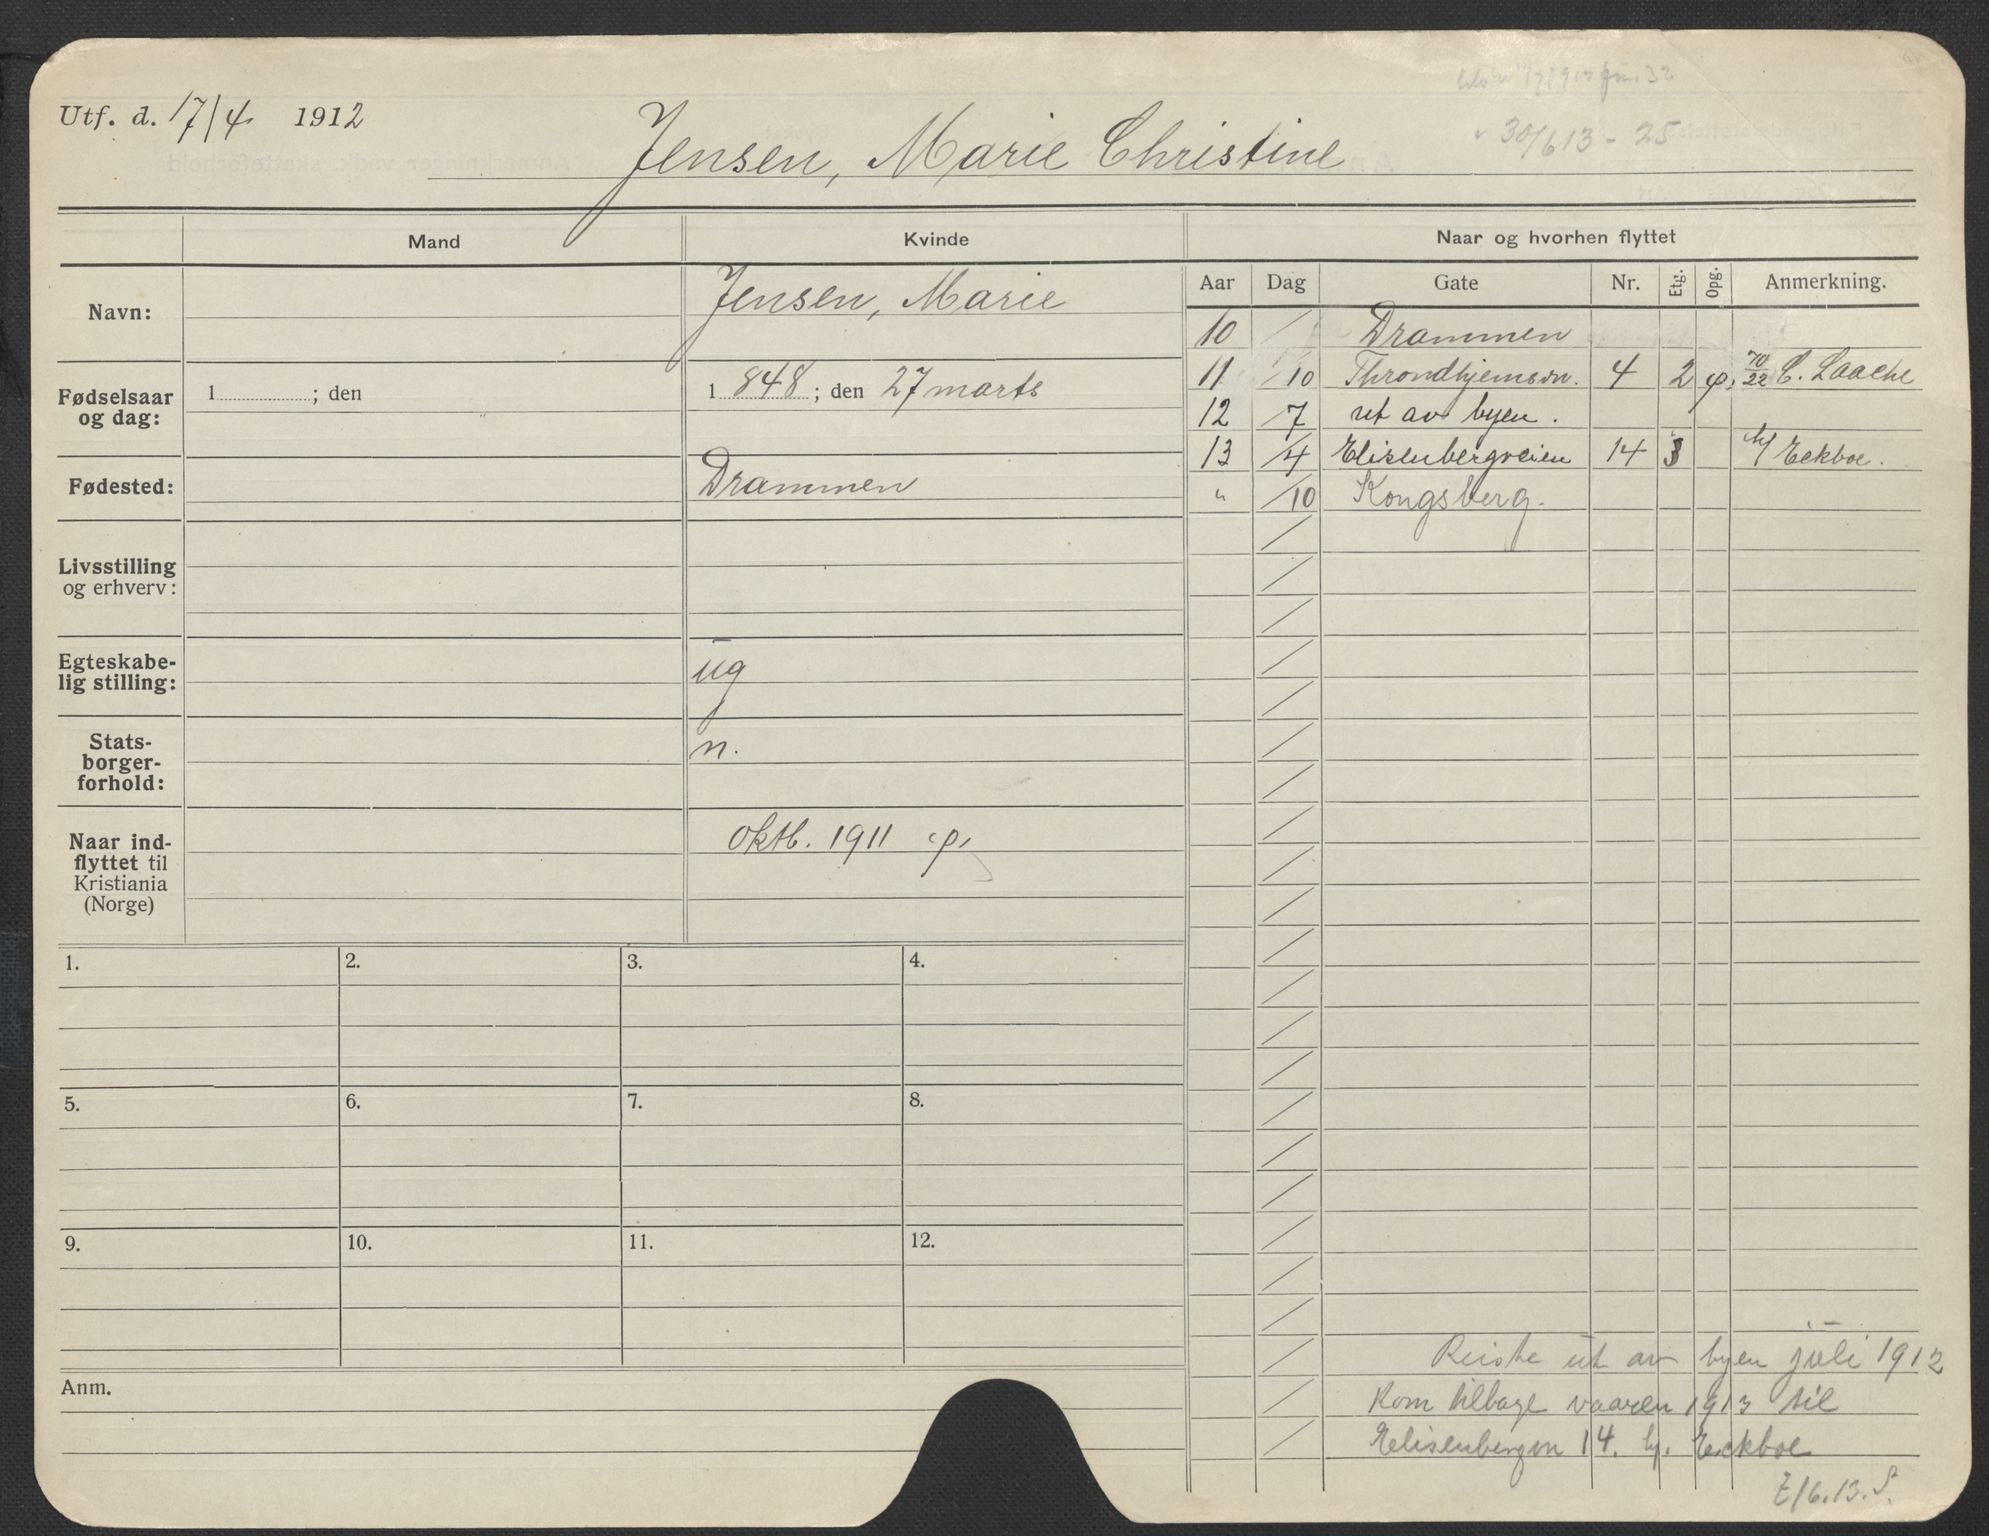 Utf. d. 17/4 1912
Jensen, Marie Christine
30/6 13 - 25
Mand
Kvinde
Naar og hvorhen flyttet
Aar Dag Gate Nr. Etg. Opg. Anmerkning.
Navn: Jensen, Marie
Fødselsaar
og dag:
1 ; den
1 848 ; den 27 marts
Fødested: Drammen
Livsstilling
og erhverv:
Egteskabe-
lig stilling:
ug
Stats-
borger-
forhold:
n.
Naar ind-
flyttet til
Kristiania
(Norge)
oktb. 1911 φ,
10 / Drammen
11 /10 Throndhjemsvn. 4 2 φ, 70/22 C. Laache
12 /7 ut av byen.
13 /4 Elisenbergveien 14 3 h/ Eckboe.
" /10 Kongsberg.
1. 2. 3. 4.
5. 6. 7. 8.
9. 10. 11. 12.
Anm.
Reiste ut av byen juli 1912
Kom tilbage vaaren 1913 til
Elisenbergvn 14. hj. Eckboe
/6.13. S.